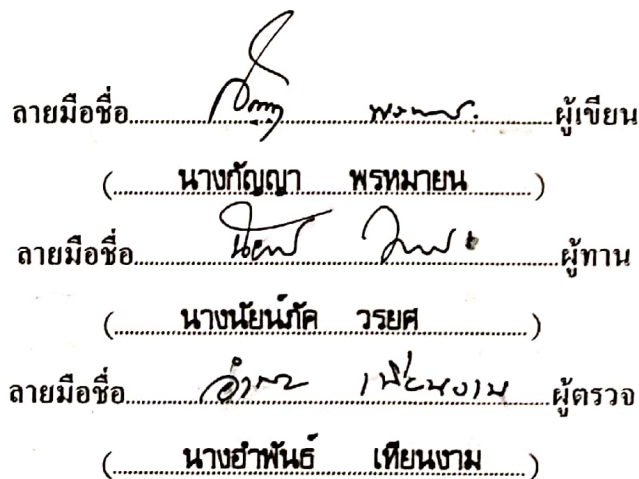 ลายมือชื่อ ผู้เขียน
(นางกัญญา พรหมายน)
ลายมือชื่อ ผู้ทาน
(นางนัยน์ภัค วรยศ)
ลายมือชื่อ ผู้ตรวจ
(นางอำพันธ์ เทียนงาม)